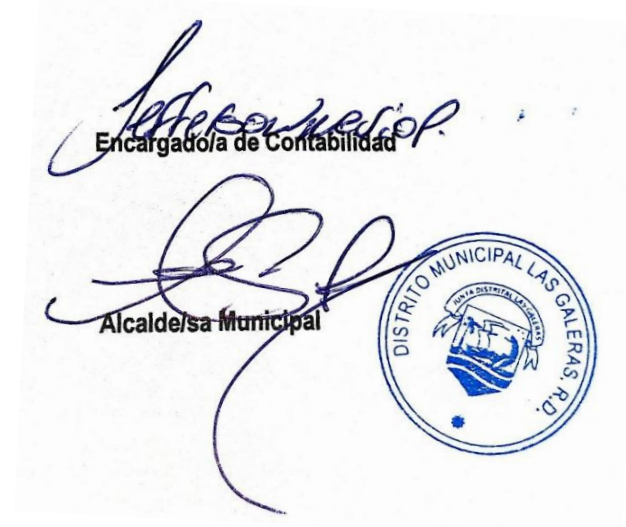 Encargado/a de Contabilidad
Alcalde/sa Municipal
DISTRITO MUNICIPAL LAS GALERAS, R.D.
JUNTA DISTRITAL LAS GALERAS